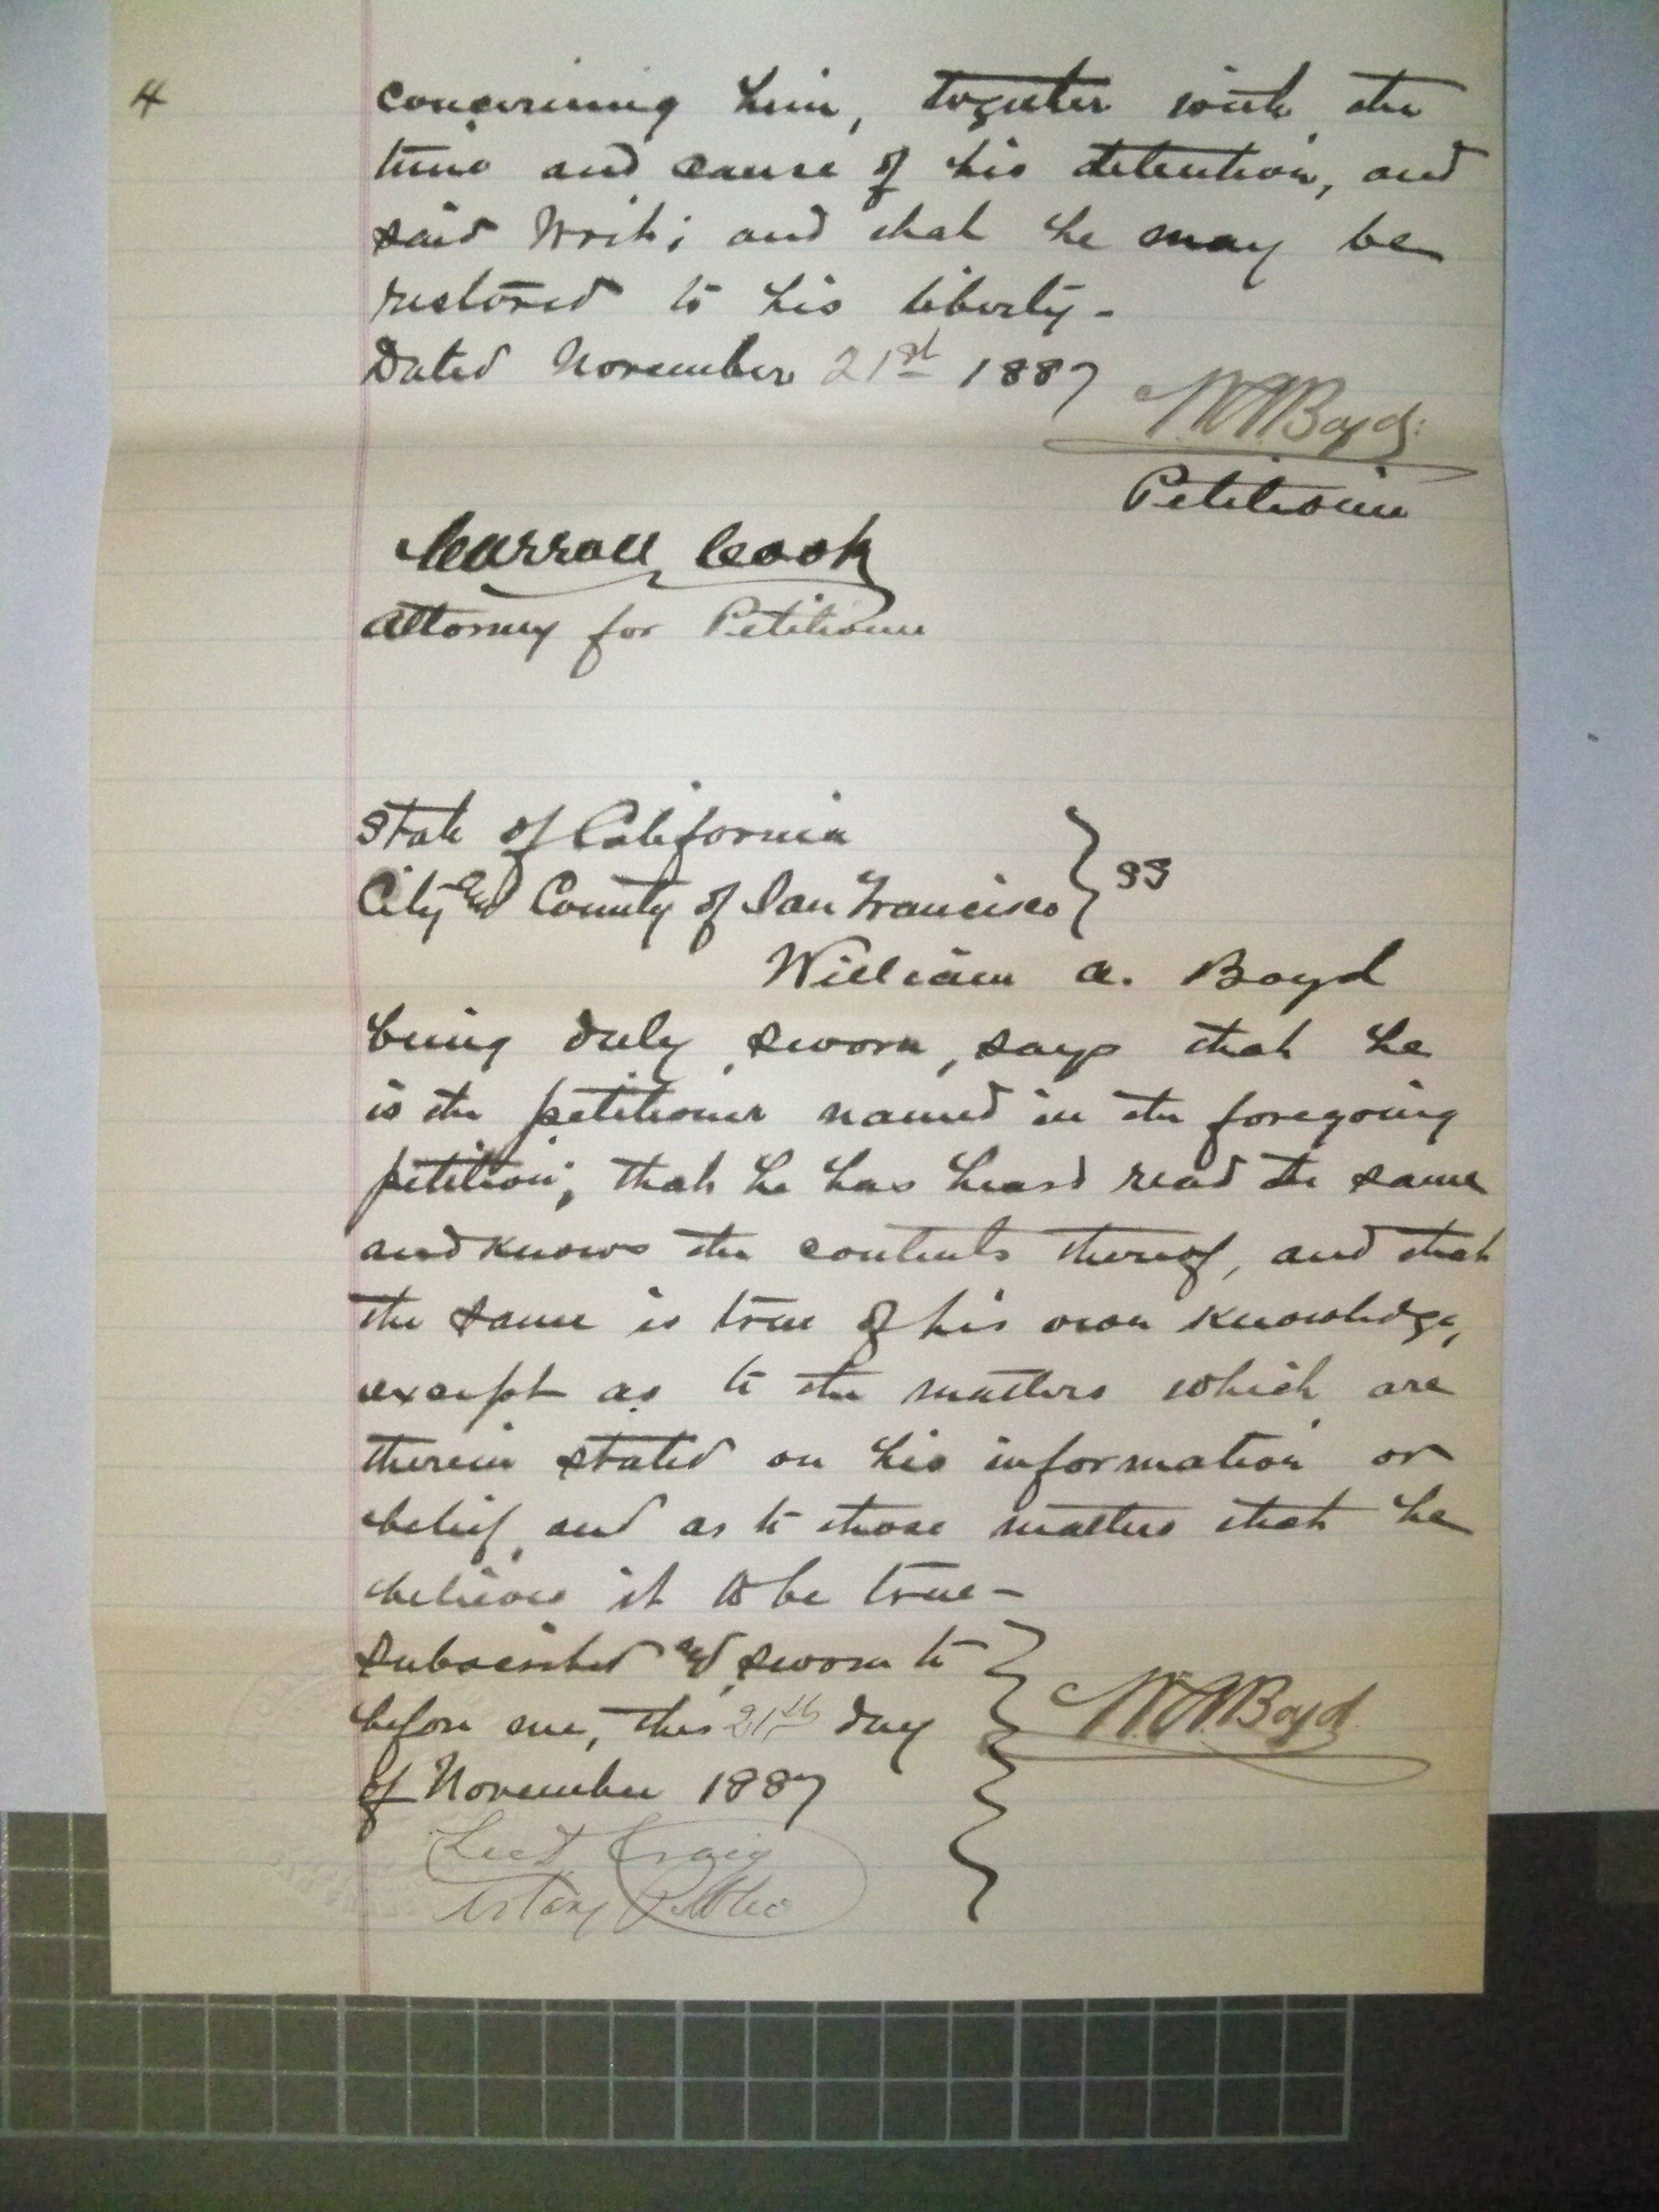 4
concerning him, together with the
time and cause of his detention, and
said Writ; and that he may be
restored to his liberty -
Dated November 21st 1887
W.A. Boyd.
Petitioner
Carroll Cook
Attorney for Petitioner
State of California
City and County of San Francisco } SS
William A. Boyd
being duly sworn, says that he
is the petitioner named in the foregoing
petition; that he has heard read the same
and knows the contents thereof, and that
the same is true of his own knowledge,
except as to the matters which are
therein stated on his information or
belief, and as to those matters that he
believes it to be true -
Subscribed and sworn to
before me, this 21th day
of November 1887
W.A. Boyd
Lee D. Craig
Notary Public